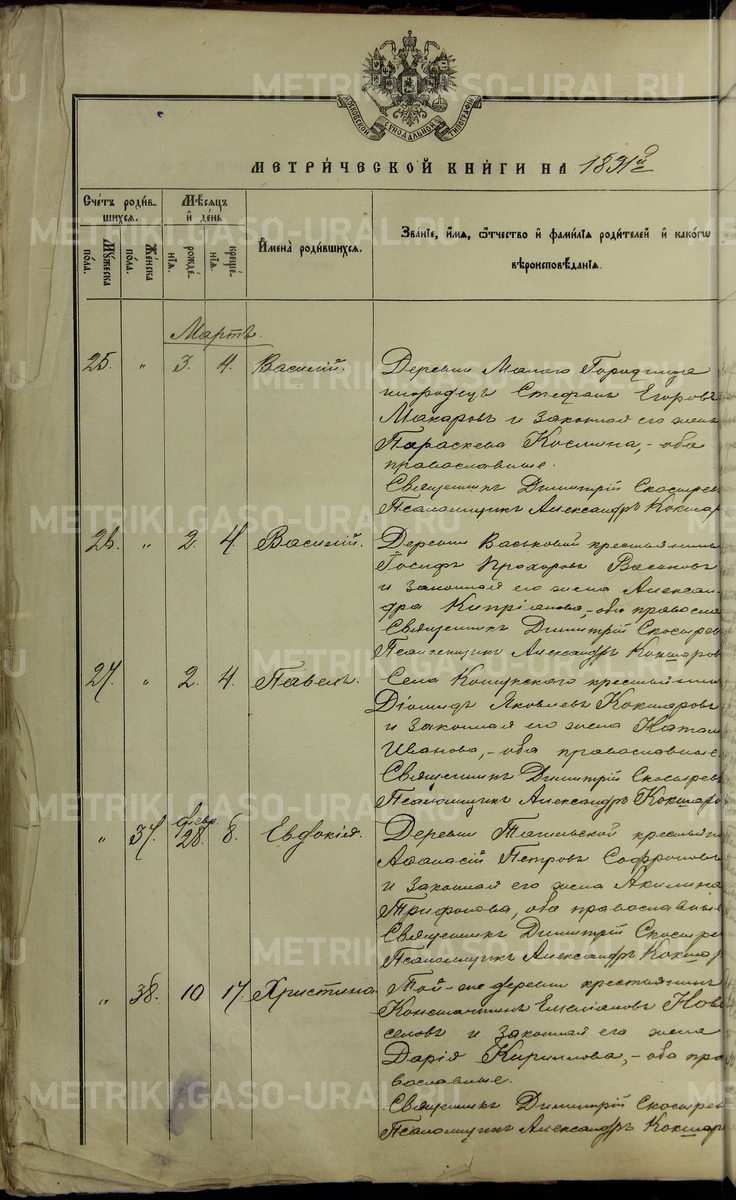 МОСКОВСКОЙ СѴНОДАЛЬНОЙ ТИПОГРАФІИ
МЕТРИ́ЧЕСКОЙ КНИ́ГИ НА 1891й
Сче́тъ роди́в-
шихся.
Му́жеска
по́ла.
Же́нска
по́ла.
Мѣ́сяцъ
и де́нь
рожде́-
нїя.
креще́-
нїя.
Имена̀ роди́вшихся.
Зва́нїе, и́мя, ѻ҆́тчество и фами́лїя роди́телей и како́гѡ
вѣроисповѣ́данїя.
Мартъ.
25. " 3. 4. Василій. Деревни Малаго Городища
инородецъ Стефанъ Егоровъ
Макаровъ и законная его жена
Параскева Космина,- оба
православные.
Священникъ Димитрій Скосырев
Псаломщикъ Александръ Кокшар
26. " 2. 4. Василій. Деревни Васьковой крестьянинъ
Іосифъ Прохоровъ Васьковъ
и законная его жена Алексан-
дра Кипріанова,- оба правосла
Священникъ Димитрій Скосырев
Псаломщикъ Александръ Кокшаров
27. " 2. 4. Павелъ. Села Кошукскаго крестьянин
Діомидъ Яковлевъ Кокшаровъ
и законная его жена Натал
Иванова,- оба православные
Священникъ Димитрій Скосырев
Псаломщикъ Александръ Кокшаро
" 37. Февр. 28. 8. Евдокія. Деревни крестьян
Аѳанасій Петровъ Софроновъ
и законная его жена Акилина
Трифонова, оба православные
Священникъ Димитрій Скосыре
Псаломщикъ Александръ Кокшар
" 38. 10 17. Христина Той-же деревни крестьянинъ
Константинъ Емеліановъ Ново
селовъ и законная его жена
Дарія Кириллова,- оба пра
вославные.
Священникъ Димитрій Скосырев
Псаломщикъ Александръ Кокшар
METRIKI.GASO-URAL.RU